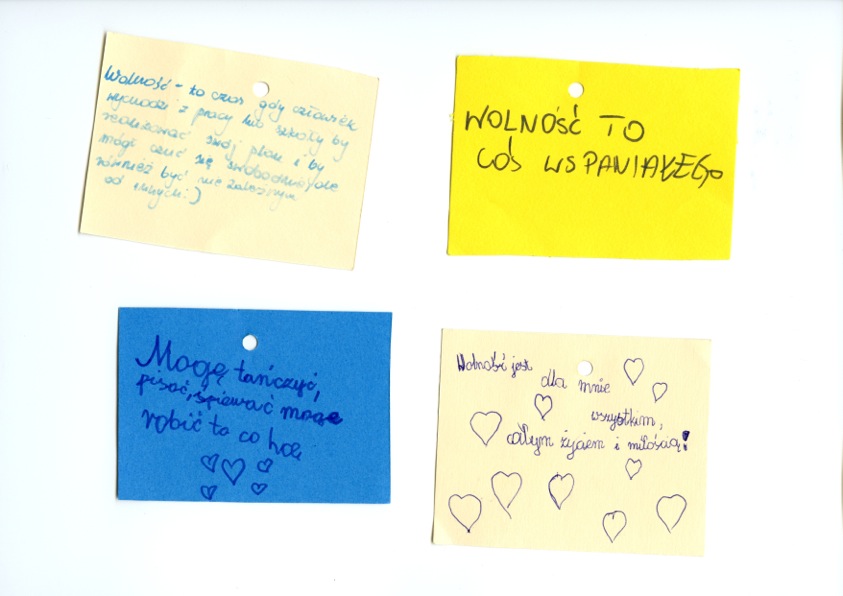 Wolność - to czas gdy człowiek
wychodzi z pracy lub szkoły by
realizować swój plan i by
mógł czuć się swobodnie, ale
również być nie zależnym
od innych :)
WOLNOŚĆ TO
COŚ WSPANIAŁEGO
Mogę tańczyć,
pisać, śpiewać mogę
robić to co
Wolność jest
dla mnie
wszystkim,
całym życiem i miłością!